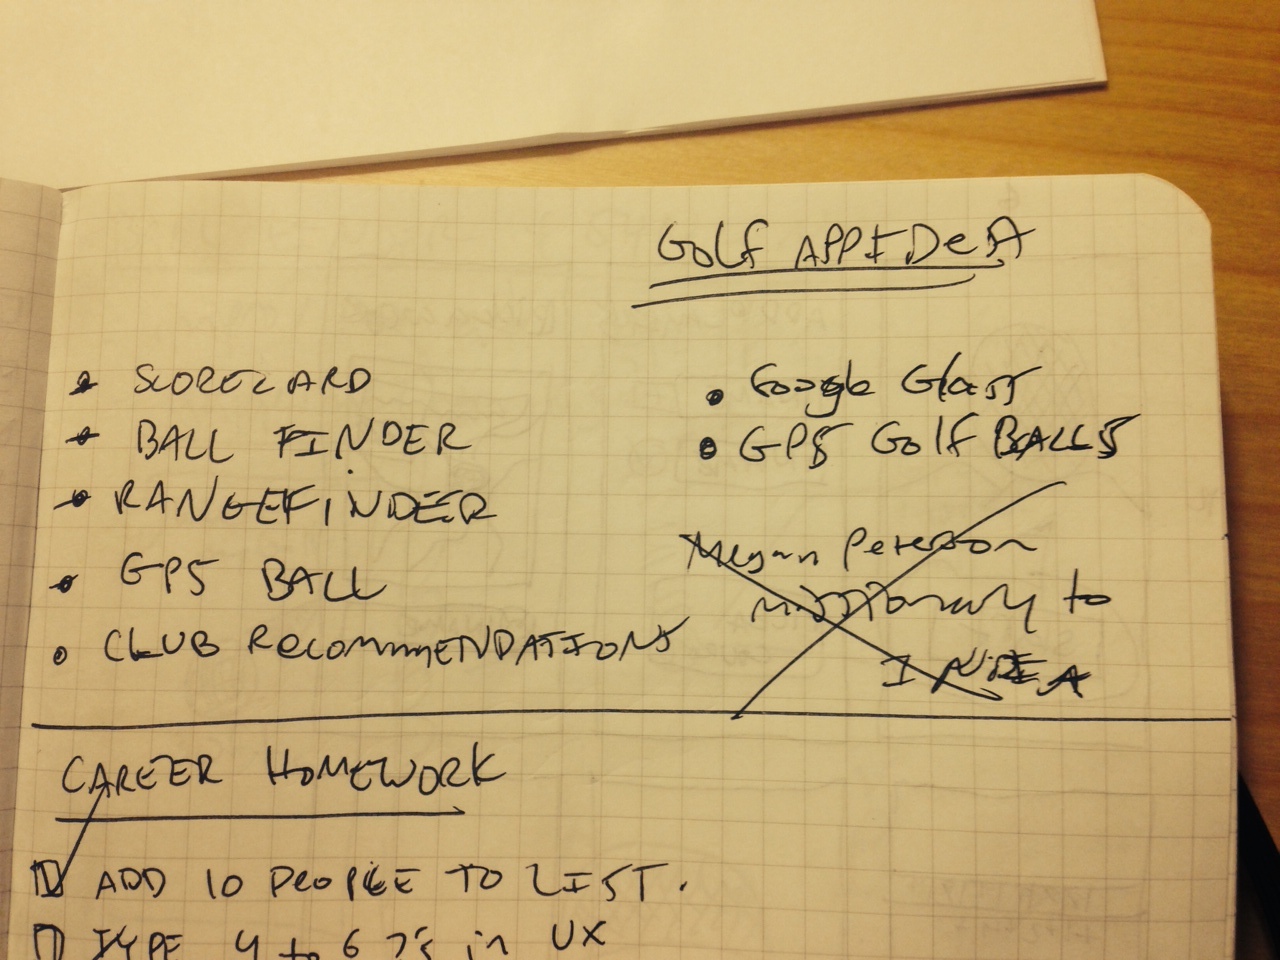 Golf APP IDeA
• SCORECARD
• BALL FINDER
• RANGEFiNDER
• GPS BALL
• CLUB RecommENDATIONS
• Google Glass
• GPS Golf BALLS
Megan Peterson
missionary to
INDIA
CAREER HOMEWORK
ADD 10 PeoPLE TO LIST.
TYPE 4 to 6 ?'s in UX